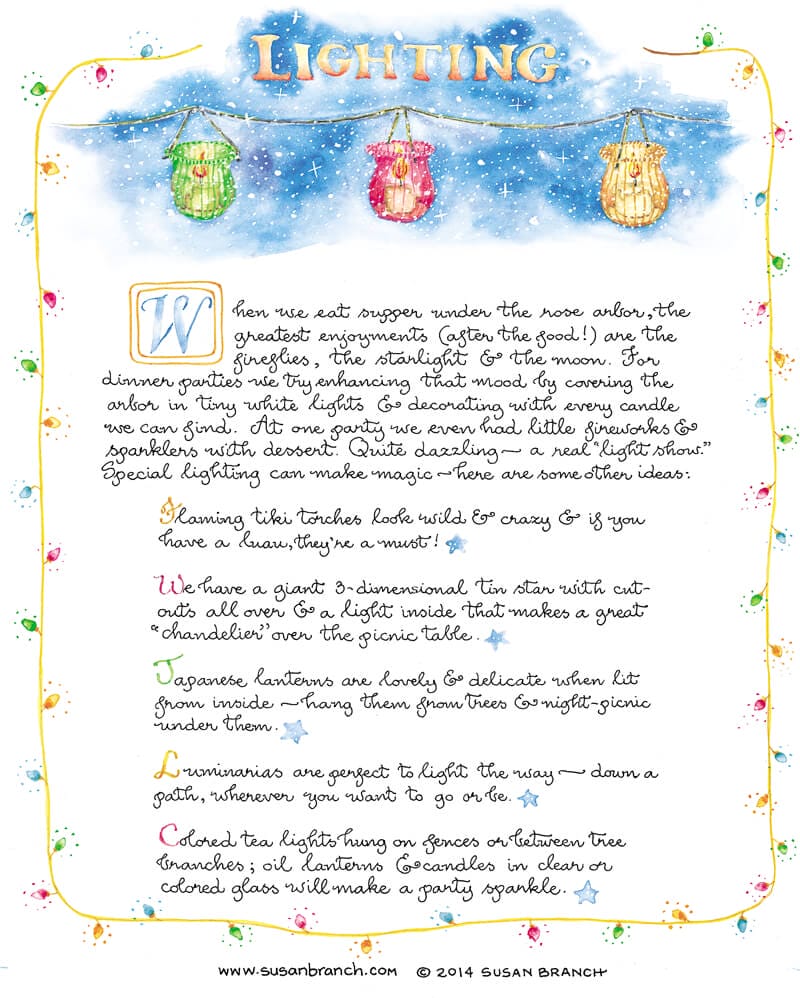 LIGHTING
When we eat supper under the rose arbor, the
greatest enjoyments (after the food!) are the
fireflies, the starlight & the moon. For
dinner parties we try enhancing that mood by covering the
arbor in tiny white lights & decorating with every candle
we can find. At one party we even had little fireworks &
sparklers with dessert. Quite dazzling — a real "light show."
Special lighting can make magic — here are some other ideas:
Flaming tiki torches look wild & crazy & if you
have a luau, they're a must!
We have a giant 3-dimensional tin star with cut-
outs all over & a light inside that makes a great
"chandelier" over the picnic table.
Japanese lanterns are lovely & delicate when lit
from inside — hang them from trees & night-picnic
under them.
Luminarias are perfect to light the way — down a
path, wherever you want to go or be.
Colored tea lights hung on fences or between tree
branches; oil lanterns & candles in clear or
colored glass will make a party sparkle.
www.susanbranch.com © 2014 SUSAN BRANCH